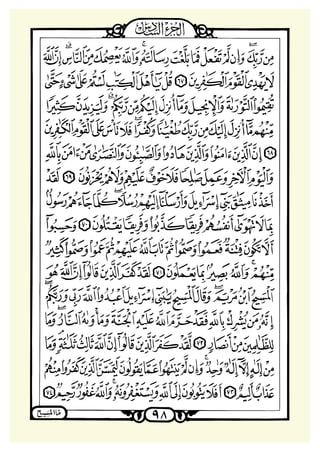 الجزء السادس
مِن رَّبِّكَ وَإِن لَّمْ تَفْعَلْ فَمَا بَلَّغْتَ رِسَالَتَهُۥ وَٱللَّهُ يَعْصِمُكَ مِنَ ٱلنَّاسِ إِنَّ ٱللَّهَ
لَا يَهْدِى ٱلْقَوْمَ ٱلْكَٰفِرِينَ ٦٧ قُلْ يَٰٓأَهْلَ ٱلْكِتَٰبِ لَسْتُمْ عَلَىٰ شَىْءٍ حَتَّىٰ
تُقِيمُوا۟ ٱلتَّوْرَىٰةَ وَٱلْإِنجِيلَ وَمَآ أُنزِلَ إِلَيْكُم مِّن رَّبِّكُمْ وَلَيَزِيدَنَّ كَثِيرًا
مِّنْهُم مَّآ أُنزِلَ إِلَيْكَ مِن رَّبِّكَ طُغْيَٰنًا وَكُفْرًا فَلَا تَأْسَ عَلَى ٱلْقَوْمِ ٱلْكَٰفِرِينَ
٦٨ إِنَّ ٱلَّذِينَ ءَامَنُوا۟ وَٱلَّذِينَ هَادُوا۟ وَٱلصَّٰبِـُٔونَ وَٱلنَّصَٰرَىٰ مَنْ ءَامَنَ بِٱللَّهِ
وَٱلْيَوْمِ ٱلْءَاخِرِ وَعَمِلَ صَٰلِحًا فَلَا خَوْفٌ عَلَيْهِمْ وَلَا هُمْ يَحْزَنُونَ ٦٩ لَقَدْ
أَخَذْنَا مِيثَٰقَ بَنِىٓ إِسْرَٰٓءِيلَ وَأَرْسَلْنَآ إِلَيْهِمْ رُسُلًا كُلَّمَا جَآءَهُمْ رَسُولٌۢ
بِمَا لَا تَهْوَىٰٓ أَنفُسُهُمْ فَرِيقًا كَذَّبُوا۟ وَفَرِيقًا يَقْتُلُونَ ٧٠ وَحَسِبُوٓا۟
أَلَّا تَكُونَ فِتْنَةٌ فَعَمُوا۟ وَصَمُّوا۟ ثُمَّ تَابَ ٱللَّهُ عَلَيْهِمْ ثُمَّ عَمُوا۟ وَصَمُّوا۟ كَثِيرٌ
مِّنْهُمْ وَٱللَّهُ بَصِيرٌۢ بِمَا يَعْمَلُونَ ٧١ لَقَدْ كَفَرَ ٱلَّذِينَ قَالُوٓا۟ إِنَّ ٱللَّهَ هُوَ
ٱلْمَسِيحُ ٱبْنُ مَرْيَمَ وَقَالَ ٱلْمَسِيحُ يَٰبَنِىٓ إِسْرَٰٓءِيلَ ٱعْبُدُوا۟ ٱللَّهَ رَبِّى وَرَبَّكُمْ
إِنَّهُۥ مَن يُشْرِكْ بِٱللَّهِ فَقَدْ حَرَّمَ ٱللَّهُ عَلَيْهِ ٱلْجَنَّةَ وَمَأْوَىٰهُ ٱلنَّارُ وَمَا
لِلظَّٰلِمِينَ مِنْ أَنصَارٍ ٧٢ لَّقَدْ كَفَرَ ٱلَّذِينَ قَالُوٓا۟ إِنَّ ٱللَّهَ ثَالِثُ ثَلَٰثَةٍ وَمَا
مِنْ إِلَٰهٍ إِلَّآ إِلَٰهٌ وَٰحِدٌ وَإِن لَّمْ يَنتَهُوا۟ عَمَّا يَقُولُونَ لَيَمَسَّنَّ ٱلَّذِينَ كَفَرُوا۟ مِنْهُمْ
عَذَابٌ أَلِيمٌ ٧٣ أَفَلَا يَتُوبُونَ إِلَى ٱللَّهِ وَيَسْتَغْفِرُونَهُۥ وَٱللَّهُ غَفُورٌ رَّحِيمٌ ٧٤
٩٨
ما المسيح